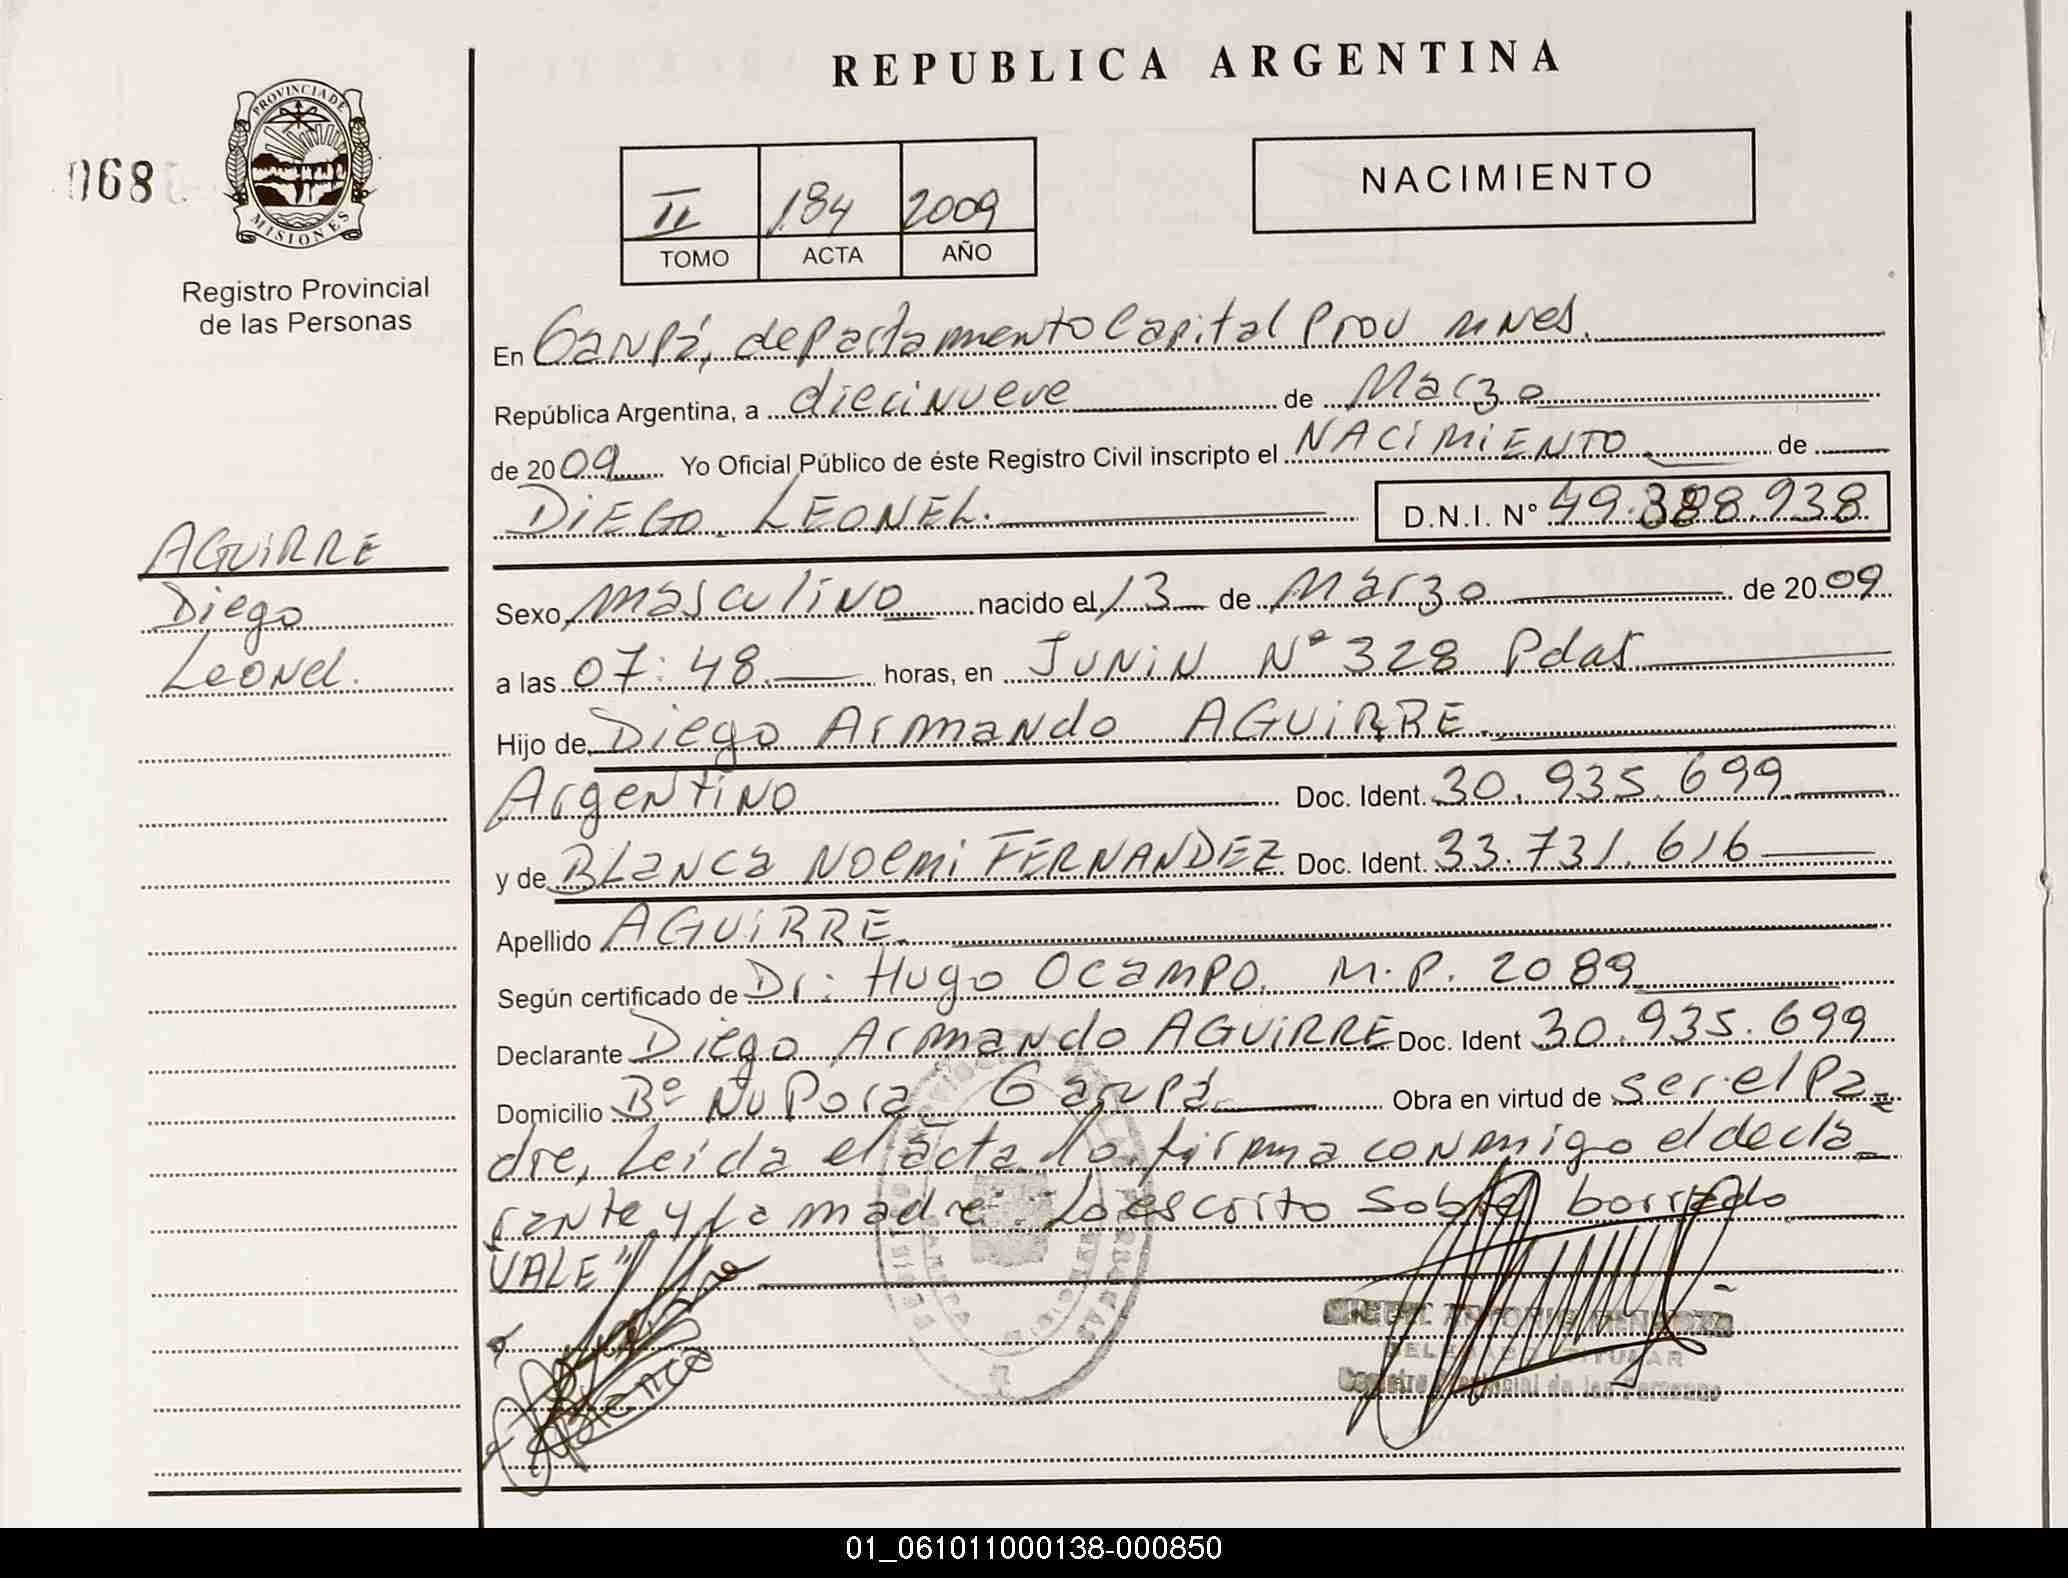 REPUBLICA ARGENTINA
PROVINCIA DE
MISIONES
068
Registro Provincial
de las Personas
NACIMIENTO
II 184 2009
TOMO ACTA AÑO
En Garupá, departamento Capital Prov Mnes.
República Argentina, a diecinueve de Marzo
de 2009 Yo Oficial Público de éste Registro Civil inscripto el NACIMIENTO de
DIEGO LEONEL. D.N.I. Nº 49.388.938
AGUIRRE
Diego
Leonel.
Sexo masculino nacido el 13 de Marzo de 2009
a las 07:48 horas, en JUNIN Nº 328 Pdas
Hijo de Diego Armando AGUIRRE.
Argentino Doc. Ident. 30.935.699
y de BLanca NOEMI FERNANDEZ Doc. Ident. 33.731.616
Apellido AGUIRRE
Según certificado de Dr: Hugo Ocampo. M.P. 2089
Declarante Diego Armando AGUIRRE Doc. Ident 30.935.699
Domicilio Bº Ñu Pora Garupá Obra en virtud de ser el Pa=
dre, Leída el acta lo firma conmigo el decla_
rante y La madre. Lo escrito sobre borrado
VALE"
Blanca
MIGUEL ANTONIO
DELEGADO TITULAR
Registro Provincial de las Personas
01_061011000138-000850